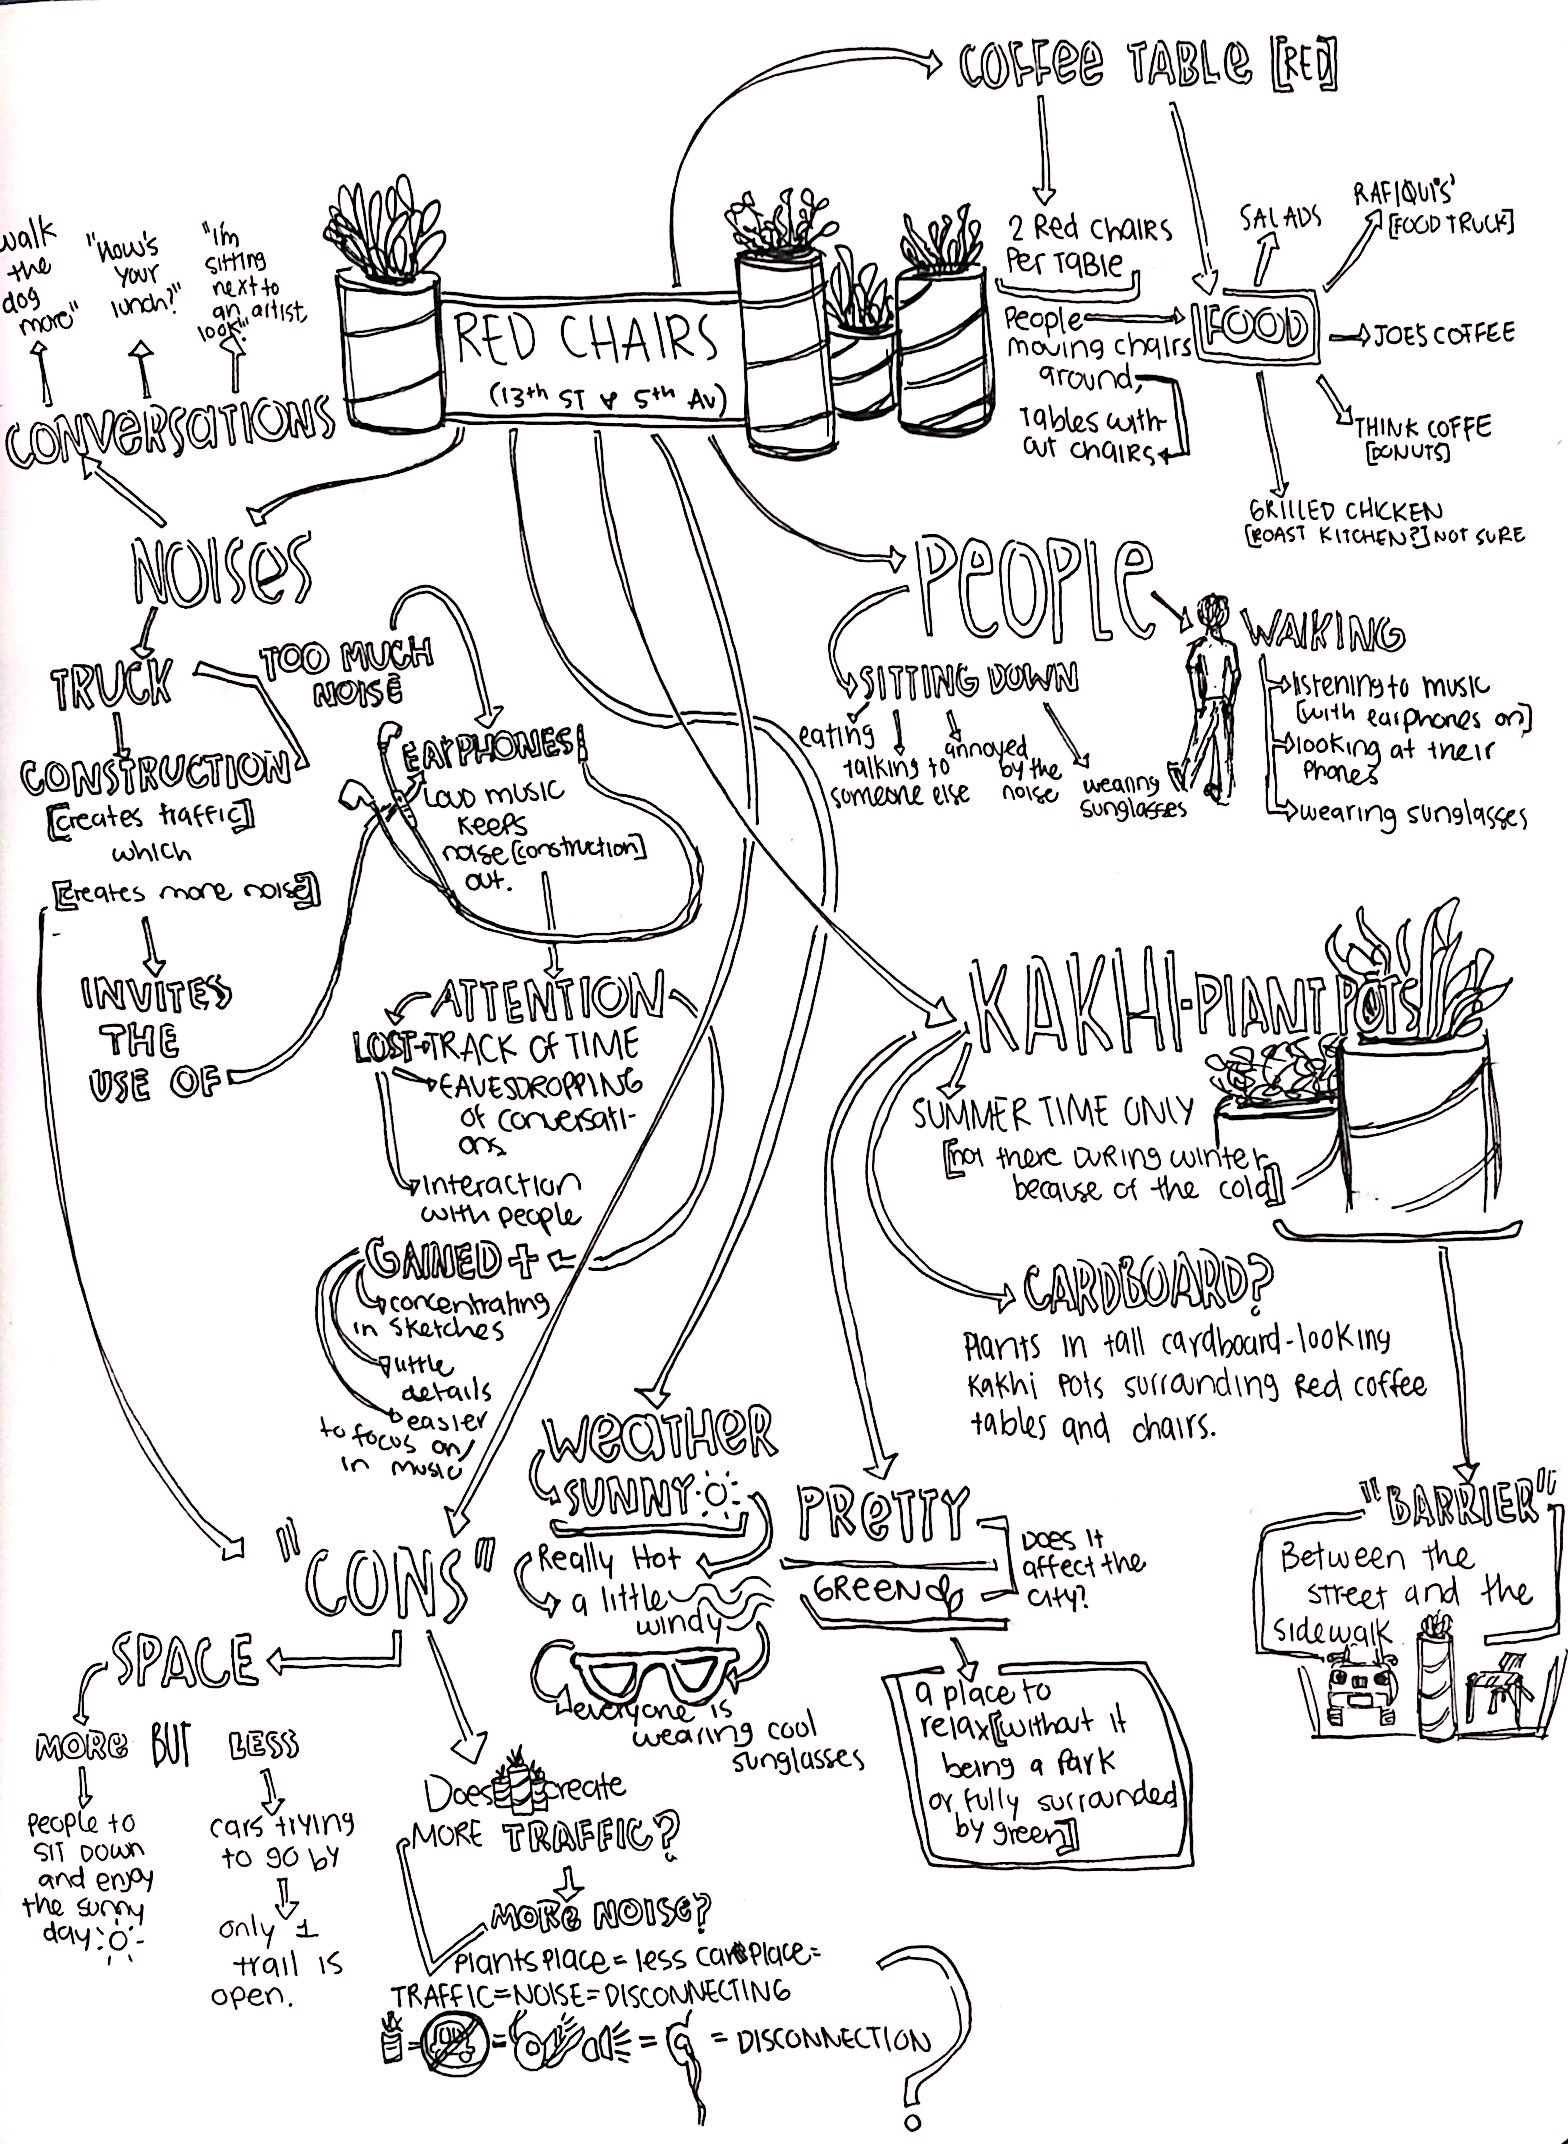 COFFEE TABLE [RED]
2 Red chairs
Per Table
People
moving chairs
around,
Tables with
out chairs
FOOD
SALADS
RAFIQUI'S'
[FOOD TRUCK]
JOE'S COFFEE
THINK COFFE
[DONUTS]
GRILLED CHICKEN
[ROAST KITCHEN?] NOT SURE
walk
the
dog
more"
"how's
your
lunch?"
"I'm
sitting
next to
an artist,
look!"
CONVERSATIONS
RED CHAIRS
(13th ST & 5th AV)
NOISES
TRUCK
CONSTRUCTION
[creates traffic]
which
[creates more noise]
INVITES
THE
USE OF
TOO MUCH
NOISE
EARPHONES!
LOUD MUSIC
KEEPS
noise [construction]
out.
ATTENTION
LOST
TRACK OF TIME
EAVESDROPPING
of conversati-
ons
interaction
with people
GAINED +
concentrating
in sketches
little
details
easier
to focus on/
in music
PEOPLE
SITTING DOWN
eating
talking to
someone else
annoyed
by the
noise
wearing
sunglasses
WALKING
listening to music
[with earphones on]
looking at their
Phones
wearing sunglasses
KAKHI-PLANT POTS
SUMMER TIME ONLY
[not there DURING winter
because of the cold]
CARDBOARD?
Plants in tall cardboard-looking
Kakhi Pots surrounding Red coffee
tables and chairs.
"BARRIER"
Between the
street and the
sidewalk
WEATHER
SUNNY
Really Hot
a little
windy
everyone is
wearing cool
sunglasses
PRETTY
GREEN
DOES IT
affect the
city?
a place to
relax [without it
being a Park
or fully surrounded
by green]
"CONS"
SPACE
MORE BUT LESS
People to
SIT DOWN
and enjoy
the sunny
day
cars trying
to go by
only 1
trail is
open.
Does create
MORE TRAFFIC?
MORE NOISE?
Plants place = less cars place =
TRAFFIC=NOISE=DISCONNECTING
= = = = DISCONNECTION
?